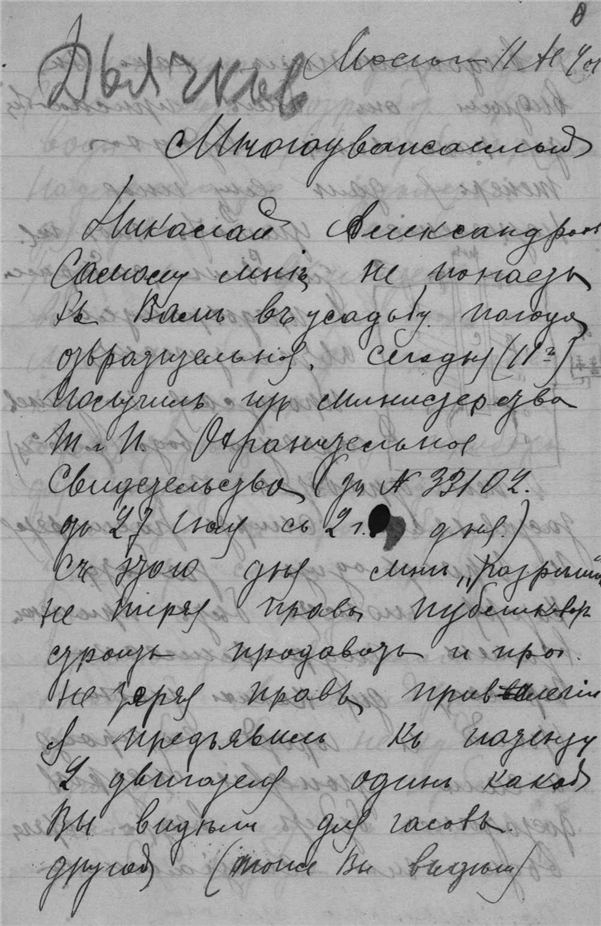 Дьячков
11 № 4
Многоуважаемый
Николай Александров
Самому мнѣ не попасть
къ Вамъ въ усадьбу погода
отвратительная. сегодня (11го)
получилъ изъ министерства
Т и П. Охранительное
свидетельство (за № 33102.
до 27 Июля съ 2 г. дня.)
Съ этого дня мнѣ „разреши
не теряя права публиковр
строить продавать и проч.
не теряя права привелегіи
я предъявилъ къ патенту
2 двигателя одинъ какой
Вы видѣли для часовъ.
другой (тоже Вы видѣли)